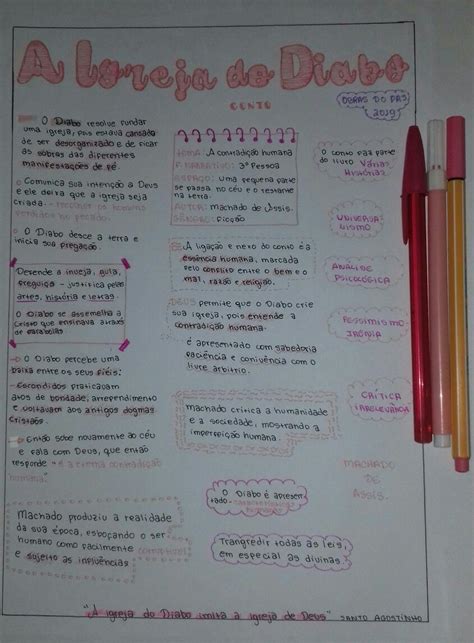 A Igreja do Diabo
CONTO
OBRAS DO PAS
2019
O Diabo resolve fundar
uma igreja, pois estava cansado
de ser desorganizado e de ficar
as sobras das diferentes
manifestações de fé.
Comunica sua intenção a Deus
e ele deixa que a igreja seja
criada
O Diabo desce a terra e
inicia sua pregação.
Defende a inveja, gula,
preguiça - justifica pelas
artes, história e letras.
O Diabo se assemelha a
Cristo que ensinava através
de parábolas
O Diabo percebe uma
baixa entre os seus fiéis:
Escondidos praticavam
atos de bondade, arrependimento
e voltavam aos antigos dogmas
cristãos.
Então sobe novamente ao céu
e fala com Deus, que então
responde "é a eterna contradição
humana"
Machado produziu a realidade
da sua época, esboçando o ser
humano como facilmente
e sujeito as influências
TEMA: A contradição humana
F. NARRATIVO: 3ª Pessoa
ESPAÇO: uma pequena parte
se passa no céu e o restante
na terra.
AUTOR: Machado de Assis.
GÊNERO: Ficção
A ligação e nexo do conto é a
essência humana, marcada
pelo conflito entre o bem e o
mal, razão e religião.
DEUS permite que o Diabo crie
sua igreja, pois entende a
contradição humana.
é apresentado com sabedoria
paciência e conivência com o
livre arbítrio.
Machado critica a humanidade
e a sociedade, mostrando a
imperfeição humana.
O Diabo é apresen-
tado
Trangredir todas as leis,
em especial as divinas.
O conto faz parte
do livro Várias
Histórias
UNIVERSA-
LISMO
ANÁLISE
PSICOLÓGICA
PESSIMISMO
IRONIA
CRÍTICA
IRRELEVÂNCIA
MACHADO
DE
ASSIS.
"A igreja do Diabo imita a igreja de Deus" SANTO AGOSTINHO